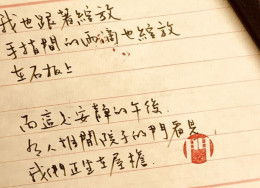 我也跟著綻放
手指間的雨滴也綻放
在石板上
而這是安靜的午後
有人推開院子的門看見
我們正坐在屋檐